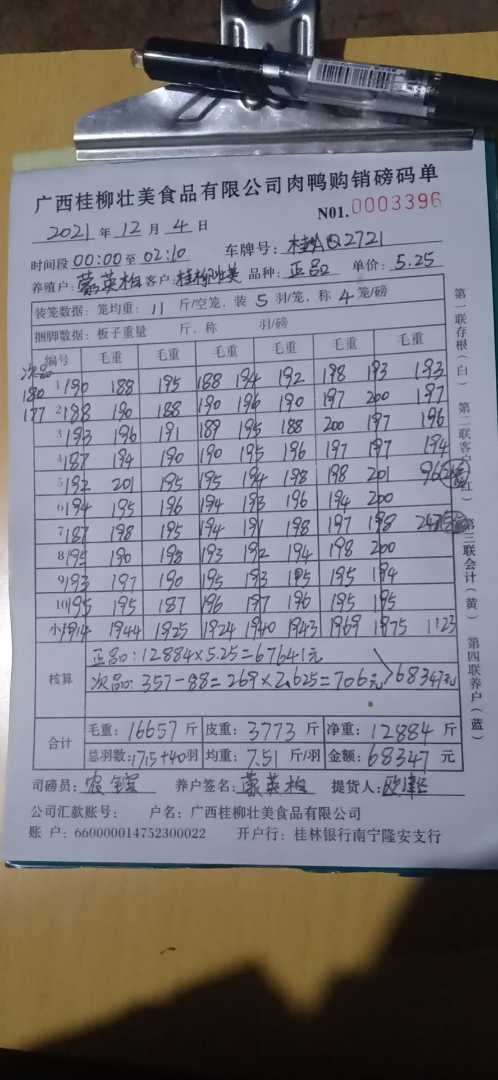 广西桂柳壮美食品有限公司肉鸭购销磅码单
N01.0003396
2021年12月4日
时间段00:00至02:10 车牌号：桂AQ2721
养殖户：蒙英柏 客户：桂柳壮美 品种：正品2 单价：5.25
装笼数据：笼均重：11斤/空笼，装5羽/笼，称4笼/磅
捆脚数据：板子重量 斤，称 羽/磅
次品 编号 毛重 毛重 毛重 毛重 毛重 毛重
180 1 190 188 195 188 194 192 198 193 193
177 2 188 190 188 190 196 190 197 200 197
3 193 196 191 189 195 188 200 197 196
4 187 194 190 190 195 196 197 197 194
5 192 201 195 195 194 198 198 201 96
6 194 195 196 194 193 196 194 200
7 187 198 195 194 191 198 197 198 247
8 195 190 198 193 192 194 198 200
9 193 197 190 195 193 195 195 194
10 195 195 187 196 197 196 195 195
小 1914 1944 1925 1924 1940 1943 1969 1975 1123
核算
正品：12884×5.25=67641元
次品：357-88=269×2.625=706元>68347元
合计
毛重：16657斤 皮重：3773斤 净重：12884斤
总羽数：1715+40羽 均重：7.51斤/羽 金额：68347元
司磅员： 养户签名：蒙英柏 提货人：
公司汇款账号： 户名：广西桂柳壮美食品有限公司
账 户：660000014752300022 开户行：桂林银行南宁隆安支行
第一联存根（白）第二联客户（红）第三联会计（黄）第四联养户（蓝）